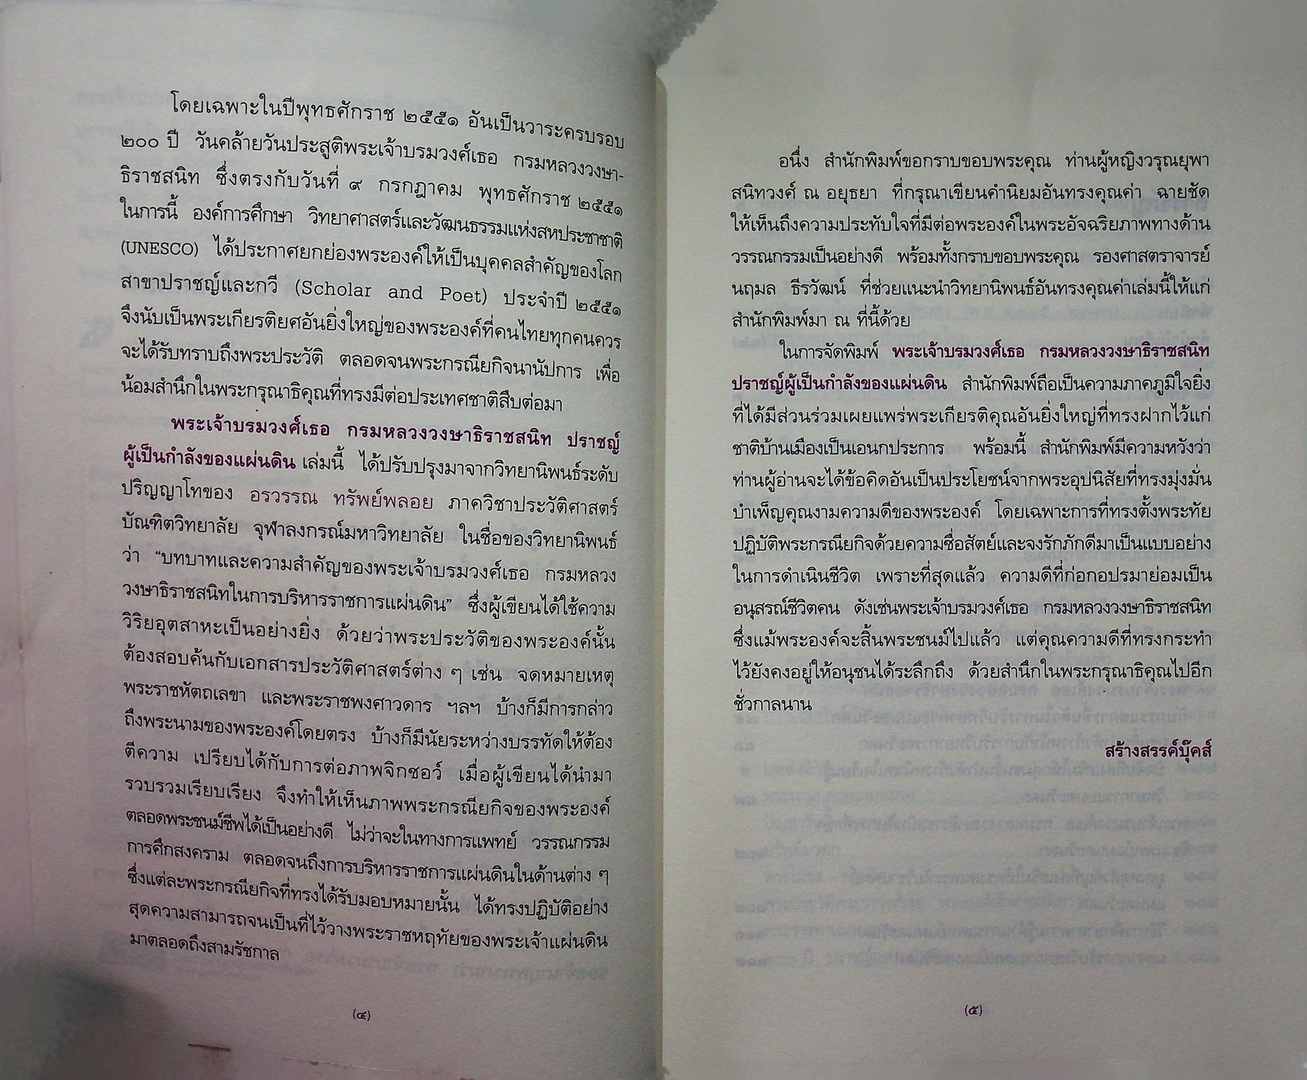 โดยเฉพาะในปีพุทธศักราช ๒๕๕๑ อันเป็นวาระครบรอบ
๒๐๐ ปี วันคล้ายวันประสูติพระเจ้าบรมวงศ์เธอ กรมหลวงวงษา-
ธิราชสนิท ซึ่งตรงกับวันที่ ๙ กรกฎาคม พุทธศักราช ๒๕๕๑
ในการนี้ องค์การศึกษา วิทยาศาสตร์และวัฒนธรรมแห่งสหประชาชาติ
(UNESCO) ได้ประกาศยกย่องพระองค์ให้เป็นบุคคลสำคัญของโลก
สาขาปราชญ์และกวี (Scholar and Poet) ประจำปี ๒๕๕๑
จึงนับเป็นพระเกียรติยศอันยิ่งใหญ่ของพระองค์ที่คนไทยทุกคนควร
จะได้รับทราบถึงพระประวัติ ตลอดจนพระกรณียกิจนานัปการ เพื่อ
น้อมสำนึกในพระกรุณาธิคุณที่ทรงมีต่อประเทศชาติสืบต่อมา
พระเจ้าบรมวงศ์เธอ กรมหลวงวงษาธิราชสนิท ปราชญ์
ผู้เป็นกำลังของแผ่นดิน เล่มนี้ ได้ปรับปรุงมาจากวิทยานิพนธ์ระดับ
ปริญญาโทของ อรวรรณ ทรัพย์พลอย ภาควิชาประวัติศาสตร์
บัณฑิตวิทยาลัย จุฬาลงกรณ์มหาวิทยาลัย ในชื่อของวิทยานิพนธ์
ว่า “บทบาทและความสำคัญของพระเจ้าบรมวงศ์เธอ กรมหลวง
วงษาธิราชสนิทในการบริหารราชการแผ่นดิน” ซึ่งผู้เขียนได้ใช้ความ
วิริยอุตสาหะเป็นอย่างยิ่ง ด้วยว่าพระประวัติของพระองค์นั้น
ต้องสอบค้นกับเอกสารประวัติศาสตร์ต่าง ๆ เช่น จดหมายเหตุ
พระราชหัตถเลขา และพระราชพงศาวดาร ฯลฯ บ้างก็มีการกล่าว
ถึงพระนามของพระองค์โดยตรง บ้างก็มีนัยระหว่างบรรทัดให้ต้อง
ตีความ เปรียบได้กับการต่อภาพจิกซอว์ เมื่อผู้เขียนได้นำมา
รวบรวมเรียบเรียง จึงทำให้เห็นภาพพระกรณียกิจของพระองค์
ตลอดพระชนม์ชีพได้เป็นอย่างดี ไม่ว่าจะในทางการแพทย์ วรรณกรรม
การศึกสงคราม ตลอดจนถึงการบริหารราชการแผ่นดินในด้านต่าง ๆ
ซึ่งแต่ละพระกรณียกิจที่ทรงได้รับมอบหมายนั้น ได้ทรงปฏิบัติอย่าง
สุดความสามารถจนเป็นที่ไว้วางพระราชหฤทัยของพระเจ้าแผ่นดิน
มาตลอดถึงสามรัชกาล
(๔)
อนึ่ง สำนักพิมพ์ขอกราบขอบพระคุณ ท่านผู้หญิงวรุณยุพา
สนิทวงศ์ ณ อยุธยา ที่กรุณาเขียนคำนิยมอันทรงคุณค่า ฉายชัด
ให้เห็นถึงความประทับใจที่มีต่อพระองค์ในพระอัจฉริยภาพทางด้าน
วรรณกรรมเป็นอย่างดี พร้อมทั้งกราบขอบพระคุณ รองศาสตราจารย์
นฤมล ธีรวัฒน์ ที่ช่วยแนะนำวิทยานิพนธ์อันทรงคุณค่าเล่มนี้ให้แก่
สำนักพิมพ์มา ณ ที่นี้ด้วย
ในการจัดพิมพ์ พระเจ้าบรมวงศ์เธอ กรมหลวงวงษาธิราชสนิท
ปราชญ์ผู้เป็นกำลังของแผ่นดิน สำนักพิมพ์ถือเป็นความภาคภูมิใจยิ่ง
ที่ได้มีส่วนร่วมเผยแพร่พระเกียรติคุณอันยิ่งใหญ่ที่ทรงฝากไว้แก่
ชาติบ้านเมืองเป็นเอนกประการ พร้อมนี้ สำนักพิมพ์มีความหวังว่า
ท่านผู้อ่านจะได้ข้อคิดอันเป็นประโยชน์จากพระอุปนิสัยที่ทรงมุ่งมั่น
บำเพ็ญคุณงามความดีของพระองค์ โดยเฉพาะการที่ทรงตั้งพระทัย
ปฏิบัติพระกรณียกิจด้วยความซื่อสัตย์และจงรักภักดีมาเป็นแบบอย่าง
ในการดำเนินชีวิต เพราะที่สุดแล้ว ความดีที่ก่อกอปรมาย่อมเป็น
อนุสรณ์ชีวิตคน ดังเช่นพระเจ้าบรมวงศ์เธอ กรมหลวงวงษาธิราชสนิท
ซึ่งแม้พระองค์จะสิ้นพระชนม์ไปแล้ว แต่คุณความดีที่ทรงกระทำ
ไว้ยังคงอยู่ให้อนุชนได้ระลึกถึง ด้วยสำนึกในพระกรุณาธิคุณไปอีก
ชั่วกาลนาน
สร้างสรรค์บุ๊คส์
(๕)